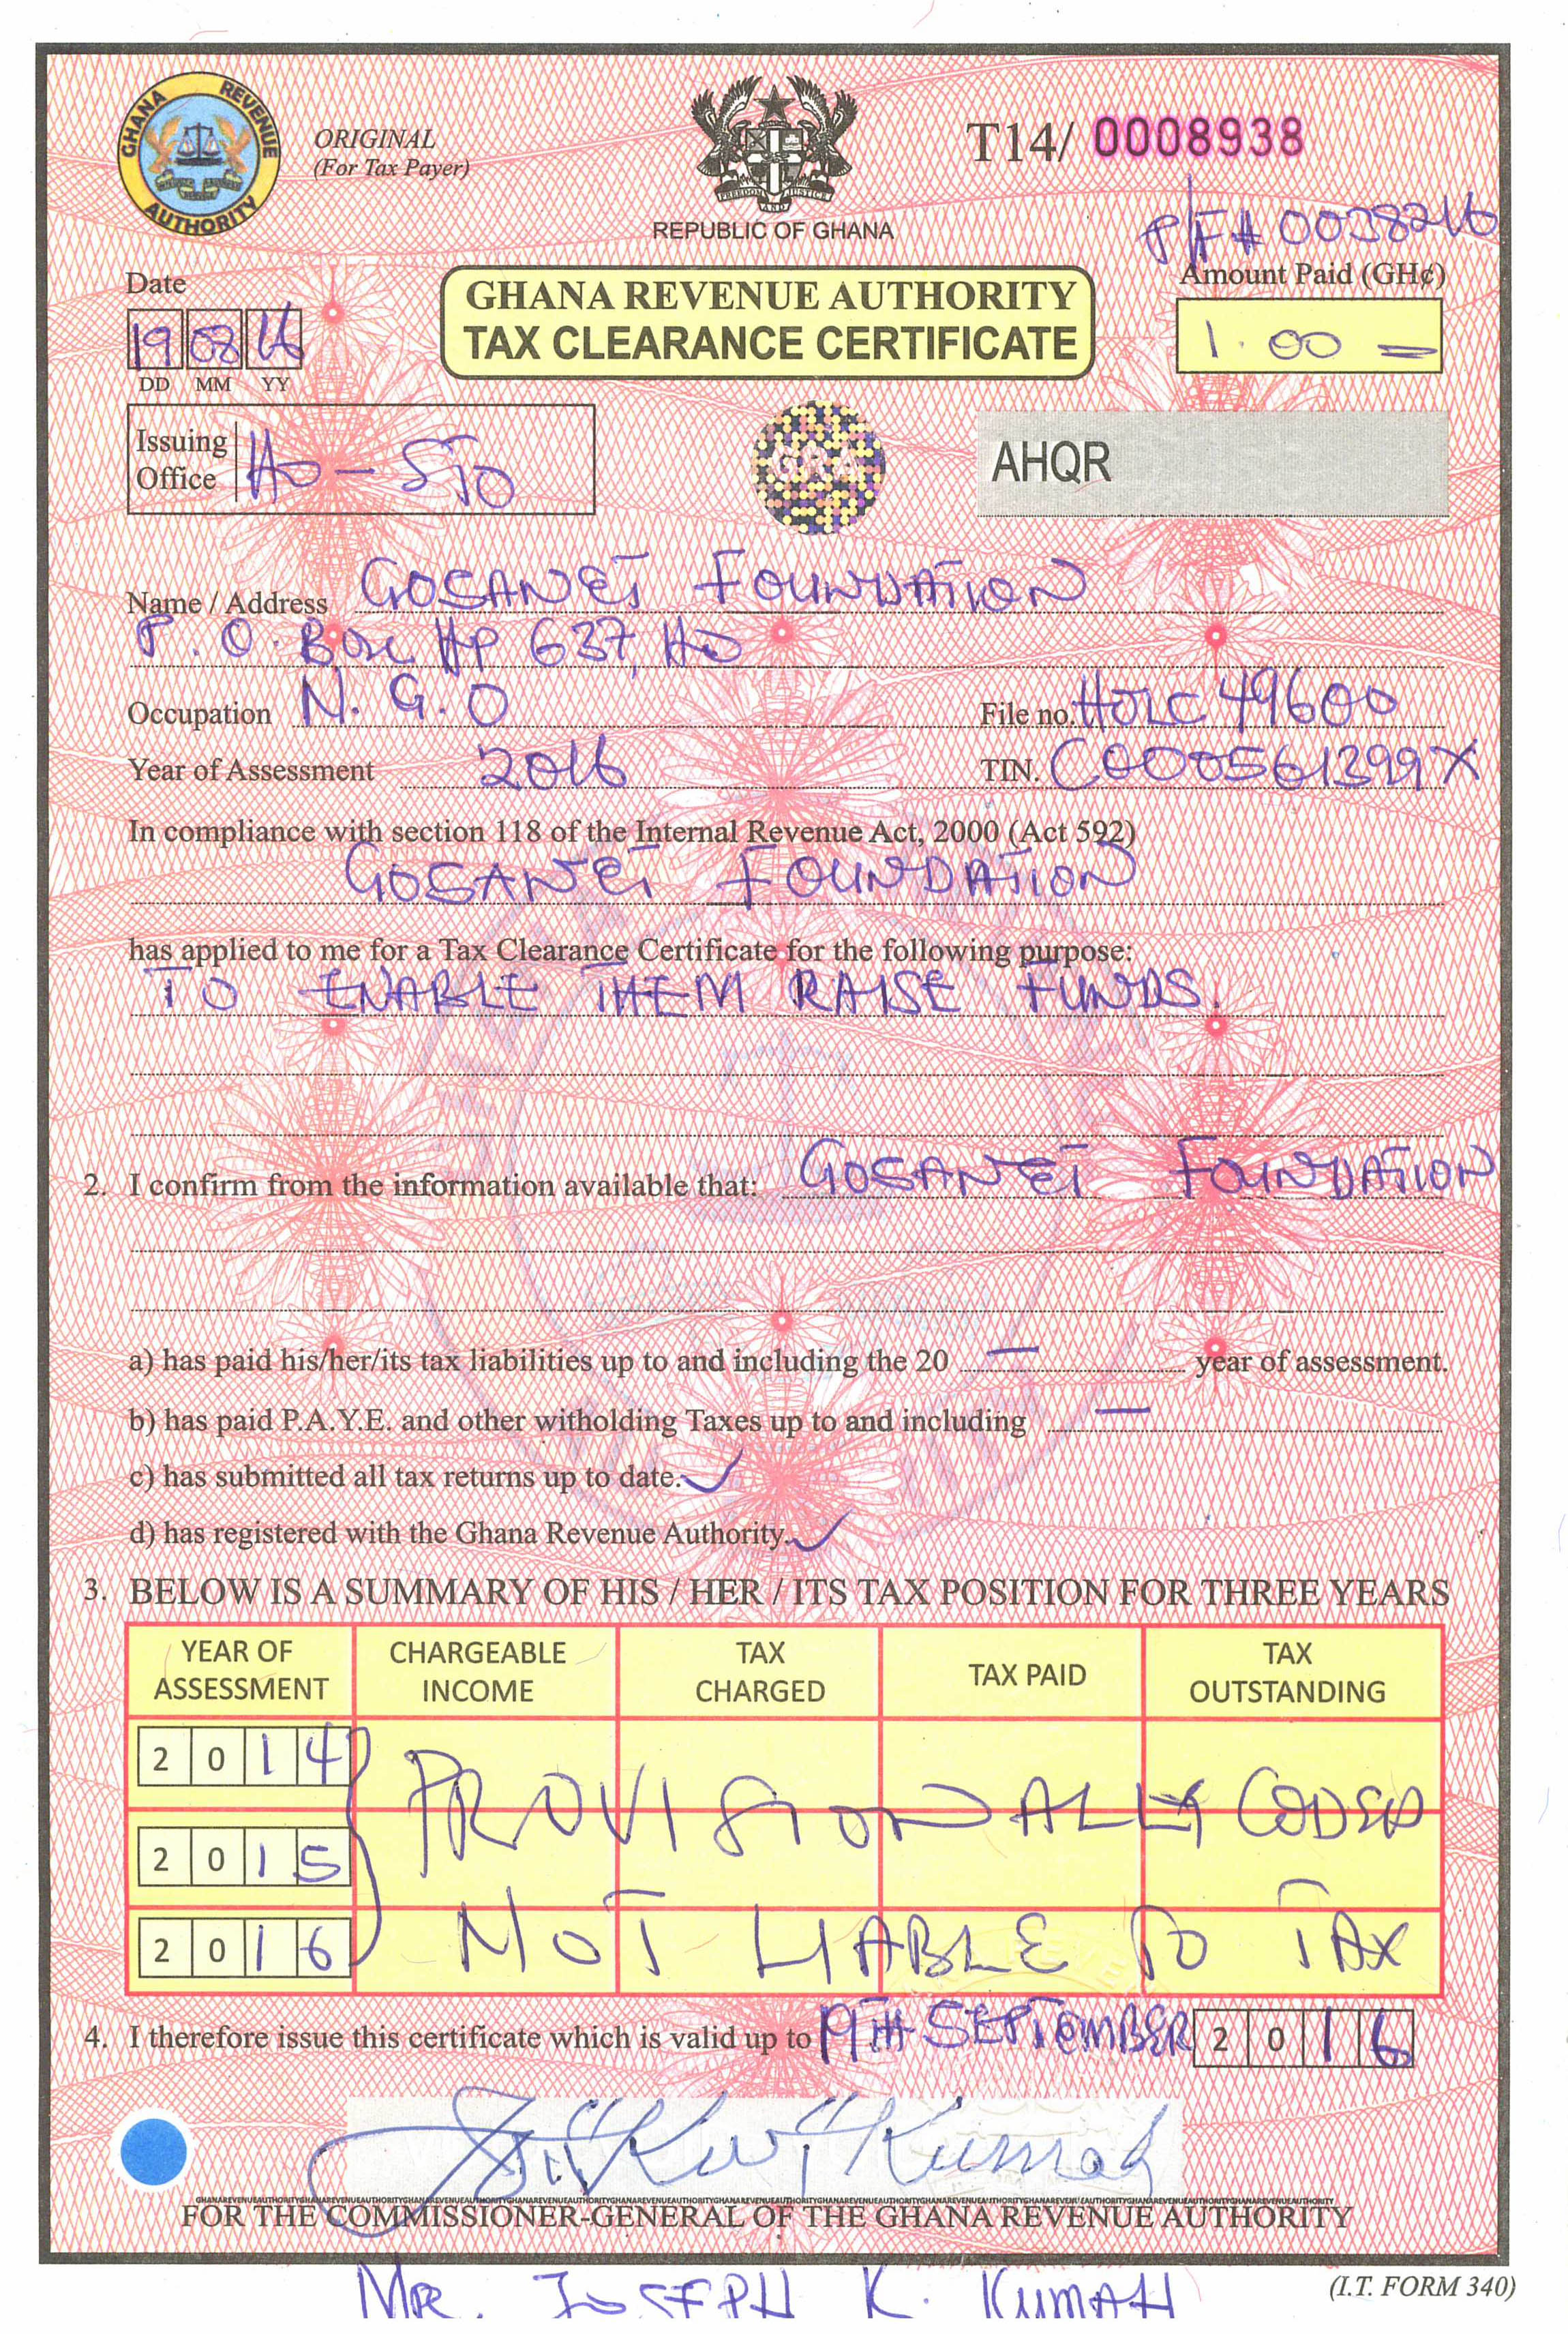 GHANA REVENUE AUTHORITY
ORIGINAL
(For Tax Payer)
FREEDOM AND JUSTICE
REPUBLIC OF GHANA
T14/ 0008938
P/F# 0038216
Date
19 08 16
DD MM YY
GHANA REVENUE AUTHORITY
TAX CLEARANCE CERTIFICATE
Amount Paid (GH¢)
1.00 =
Issuing Office HO - STO
GRA
AHQR
Name / Address GOSANET FOUNDATION
P.O. Box HP 637, HO
Occupation N.G.O File no. HOLC 49600
Year of Assessment 2016 TIN. C000561399X
In compliance with section 118 of the Internal Revenue Act, 2000 (Act 592)
GOSANET FOUNDATION
has applied to me for a Tax Clearance Certificate for the following purpose:
TO ENABLE THEM RAISE FUNDS.
2. I confirm from the information available that: GOSANET FOUNDATION
a) has paid his/her/its tax liabilities up to and including the 20 — year of assessment.
b) has paid P.A.Y.E. and other witholding Taxes up to and including —
c) has submitted all tax returns up to date. ✓
d) has registered with the Ghana Revenue Authority. ✓
3. BELOW IS A SUMMARY OF HIS / HER / ITS TAX POSITION FOR THREE YEARS
YEAR OF ASSESSMENT CHARGEABLE INCOME TAX CHARGED TAX PAID TAX OUTSTANDING
2014
PROVISIONALLY CODED
2015
NOT LIABLE TO TAX
2016
4. I therefore issue this certificate which is valid up to 19TH SEPTEMBER 2016
FOR THE COMMISSIONER-GENERAL OF THE GHANA REVENUE AUTHORITY
MR. JOSEPH K. KUMAH
(I.T. FORM 340)